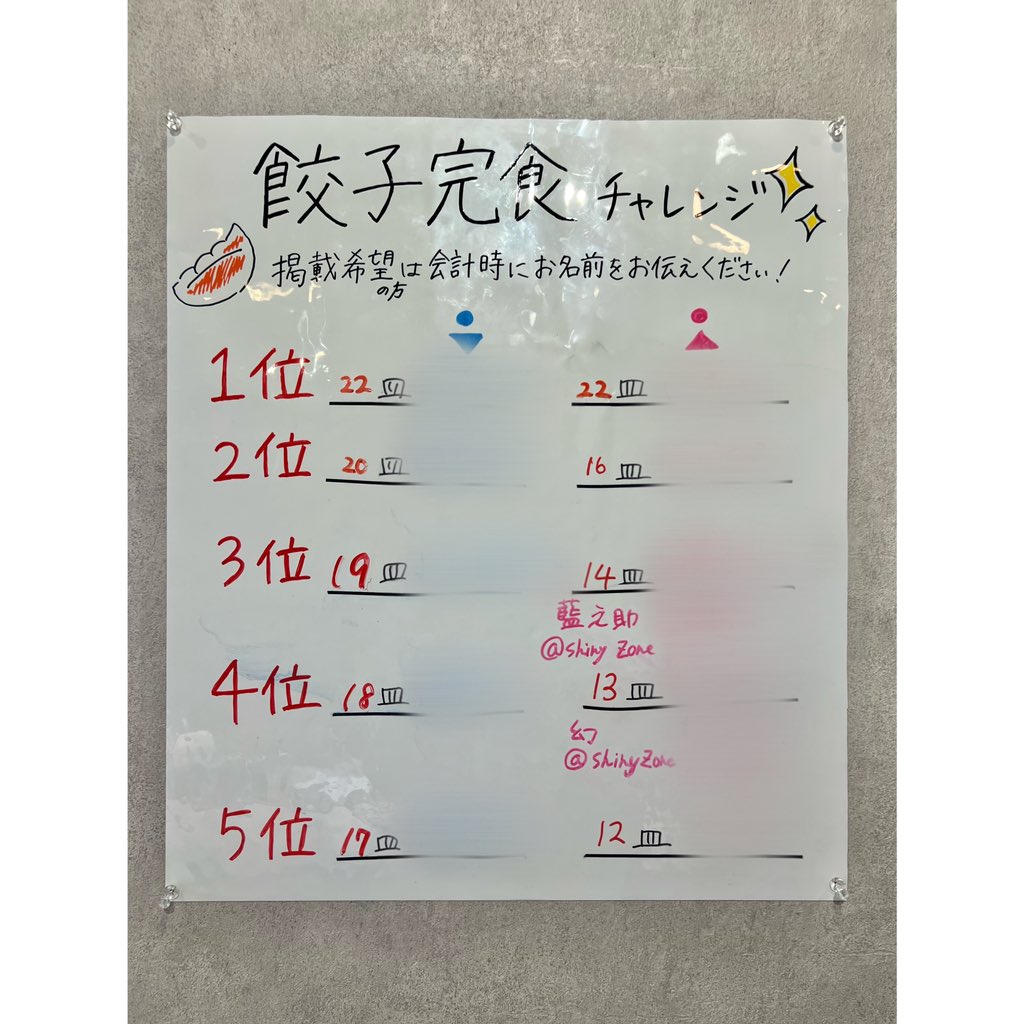 餃子完食チャレンジ
掲載希望の方は会計時にお名前をお伝えください！
1位 22皿 22皿
2位 20皿 16皿
3位 19皿 14皿
藍之助
@shiny Zone
4位 18皿 13皿
幻
@shinyZone
5位 17皿 12皿